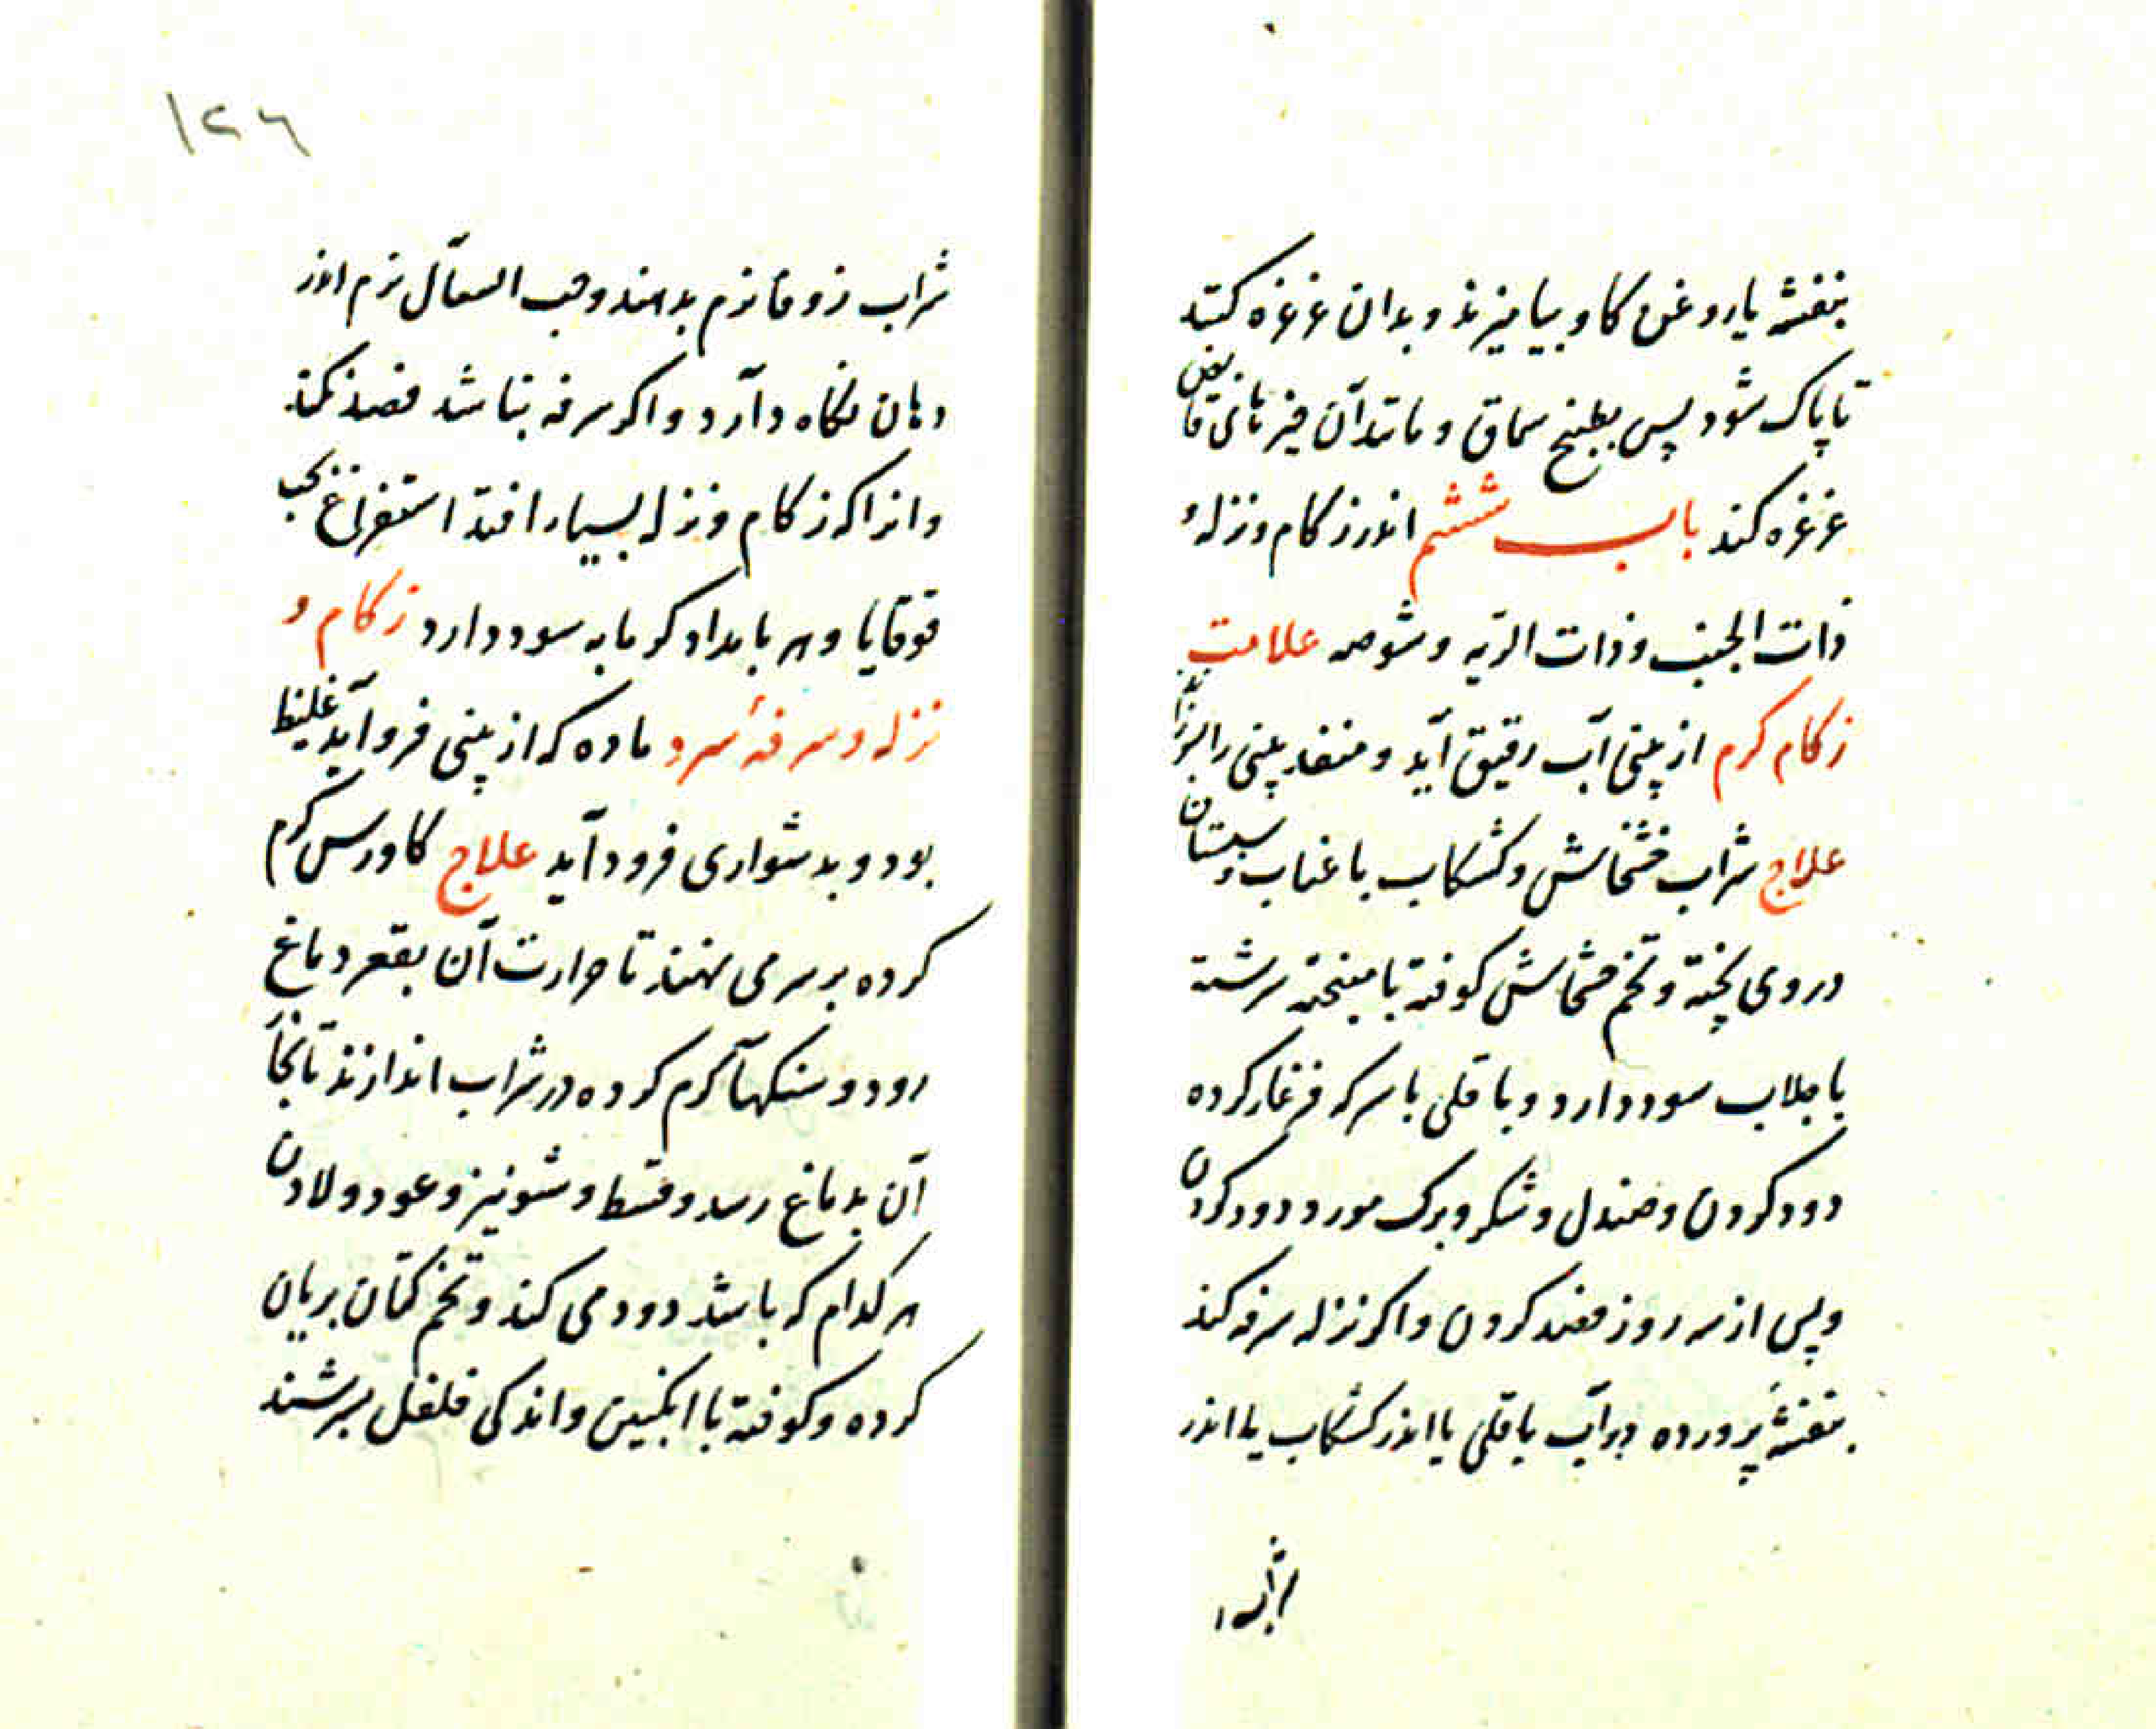 بنفشه یا روغن کاو بیامیزند و بدان غرغره کنند
تا پاک شود پس بطبیخ سماق و مانند آن چیزهای قابض
غرغره کند باب ششم اندر زکام و نزله و
ذات الجنب و ذات الریه و شوصه علامت
زکام کرم از بینی آب رقیق آید و منفذ بینی را بسوزاند
علاج شراب خشخاش و کشکاب با عناب و سپستان
در وی پخته و تخم خشخاش کوفته با میبخته سرشته
با جلاب سود دارد و باقلی با سرکه فرغار کرده
دود کردن و صندل و شکر و برک مورد دود کردن
و پس از سه روز فصد کردن و اکر نزله سرفه کند
بنفشه پرورده در آب باقلی یا اندر کشکاب یا اندر
شراب
۱۲۶
شراب زوفا نرم بدهند و حب السعال نرم اندر
دهان نکاه دارد و اکر سرفه بناشد فصد نکند
و انرا که زکام و نزله بسیار افتد استفراغ بحب
قوقایا و هر بامداد کرمابه سود دارد زکام و
نزله و سرفهٔ سرد ماده که از بینی فرو آید غلیظ
بود و بدشواری فرود آید علاج کاورس کرم
کرده بر سر می نهند تا حرارت آن بقعر دماغ
رود و سنکها کرم کرده در شراب اندازند تا بخار
آن بدماغ رسد و قسط و شونیز و عود و لادن
هر کدام که باشد دود می کند و تخم کتان بریان
کرده و کوفته با انکبین و اندکی فلفل بسرشند